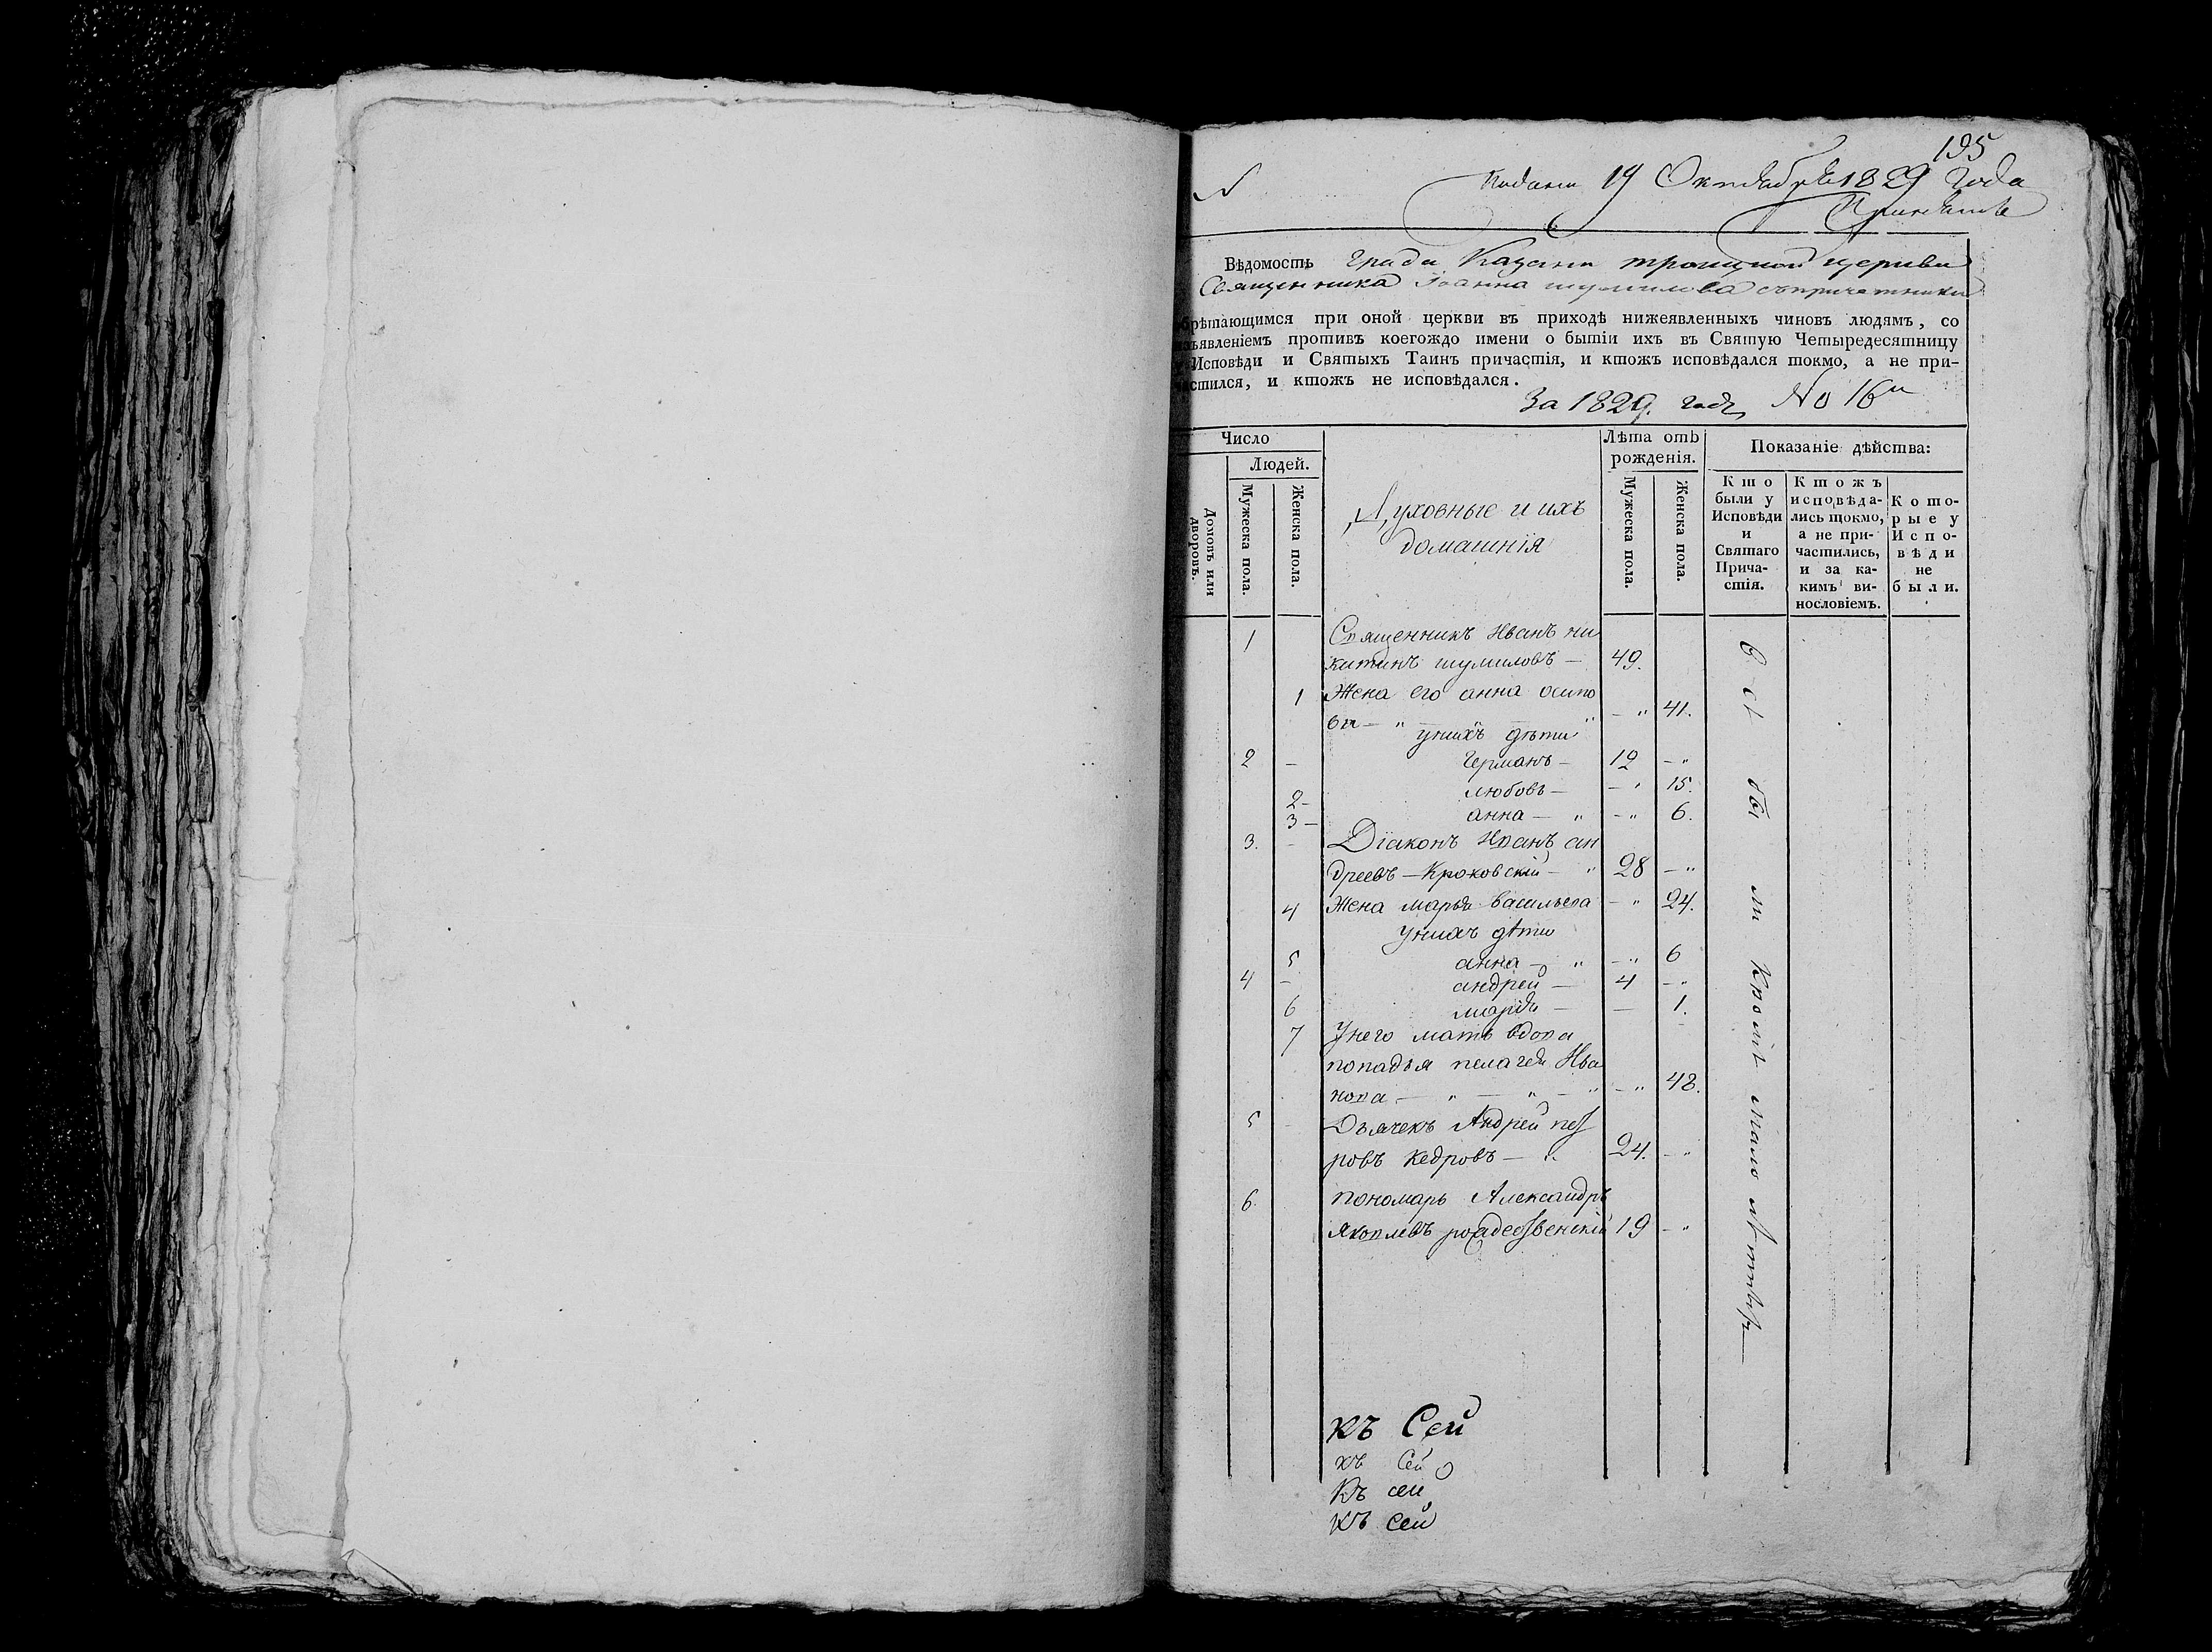 195
Подана 19 Октября 1829 года
№
Вѣдомость града Казани троицкой церкви
Священника Іоанна шумилова съпричетники
обрѣтающимся при оной церкви въ приходѣ нижеявленныхъ чиновъ людямъ, со
изъявленіемъ противъ коегождо имени о бытіи ихъ въ Святую Четыредесятницу
Исповѣди и Святыхъ Таинъ причастія, и ктожъ исповѣдался токмо, а не при-
частился, и ктожъ не исповѣдался.
За 1829. годъ No 16й
Число
Людей.
Домовъ или дворовъ.
Мужеска пола.
Женска пола.
Духовные и ихъ
домашнія
Лѣта отъ
рожденія.
Мужеска пола.
Женска пола.
Показаніе дѣйства:
Кто
были у
Исповѣди
и
Святаго
Прича-
стія.
Ктожъ
исповѣда-
лись токмо,
а не при-
частились,
и за ка-
кимъ ви-
нословіемъ.
Кото-
рые у
Испо-
вѣди
не
были.
1 Священникъ Иванъ ни
китинъ шумиловъ — 49.
1 Жена его анна осипо
ва — " — " — " 41.
унихъ дѣти
2 — Германъ — 12 — "
2 — любовь — — " 15.
3 — анна — " — " 6.
3. — Діаконъ Иванъ ан
дреевъ — Кроковскій — " 28 — "
4 Жена марья васильева — " 24.
Унихъ дѣти
5 анна — " — " 6
4 — андрей — 4 — "
6 марія — — 1.
7 Унего мать вдова
попадья пелагея Ива
нова — " — " — " — " 48.
5 — Дьячекъ Андрей пет
ровъ Кедровъ — " 24. — "
6. пономарь Александръ
Яковлевъ рождественскій 19 — "
всѣ были Кромѣ мало лѣтнихъ
КЪ Сей
къ Сей
Къ сей
КЪ сей